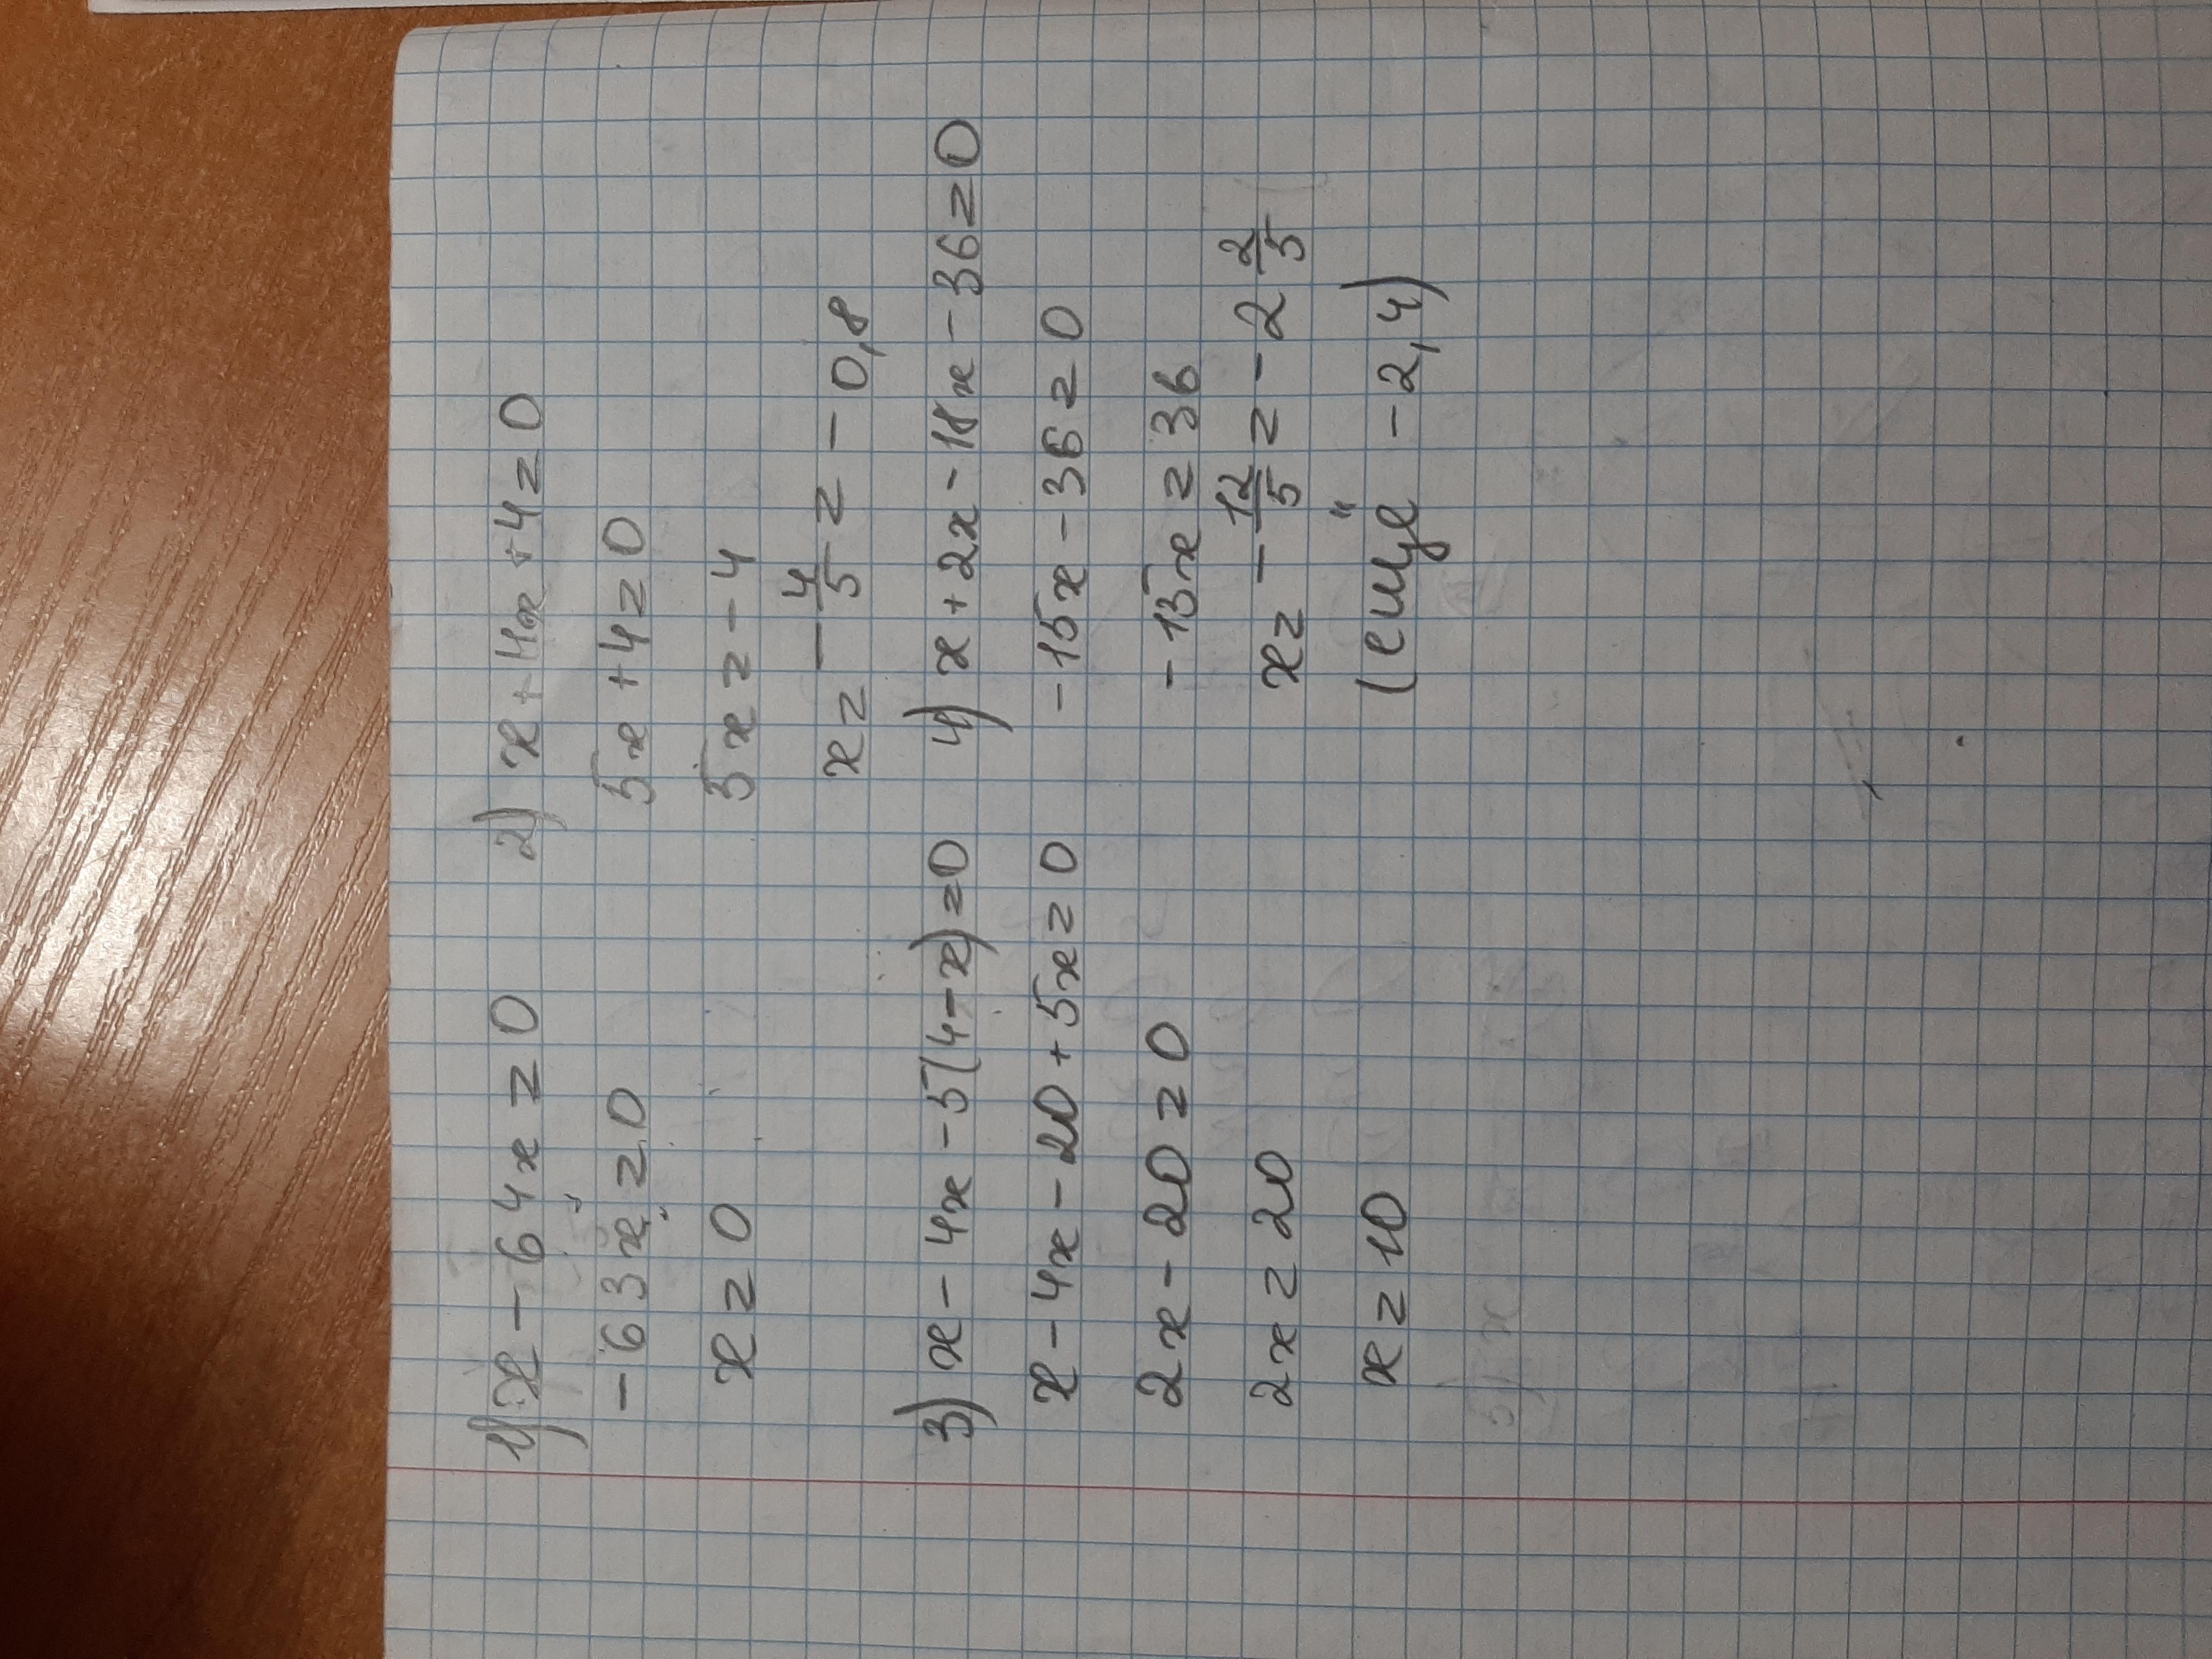 1) x - 64x = 0
-63x = 0
x = 0
2) x + 4x + 4 = 0
5x + 4 = 0
5x = -4
x = -4/5 = -0,8
3) x - 4x - 5(4-x) = 0
x - 4x - 20 + 5x = 0
2x - 20 = 0
2x = 20
x = 10
4) x + 2x - 18x - 36 = 0
-15x - 36 = 0
-15x = 36
x = -12/5 = -2 2/5
(ещё -2,4)